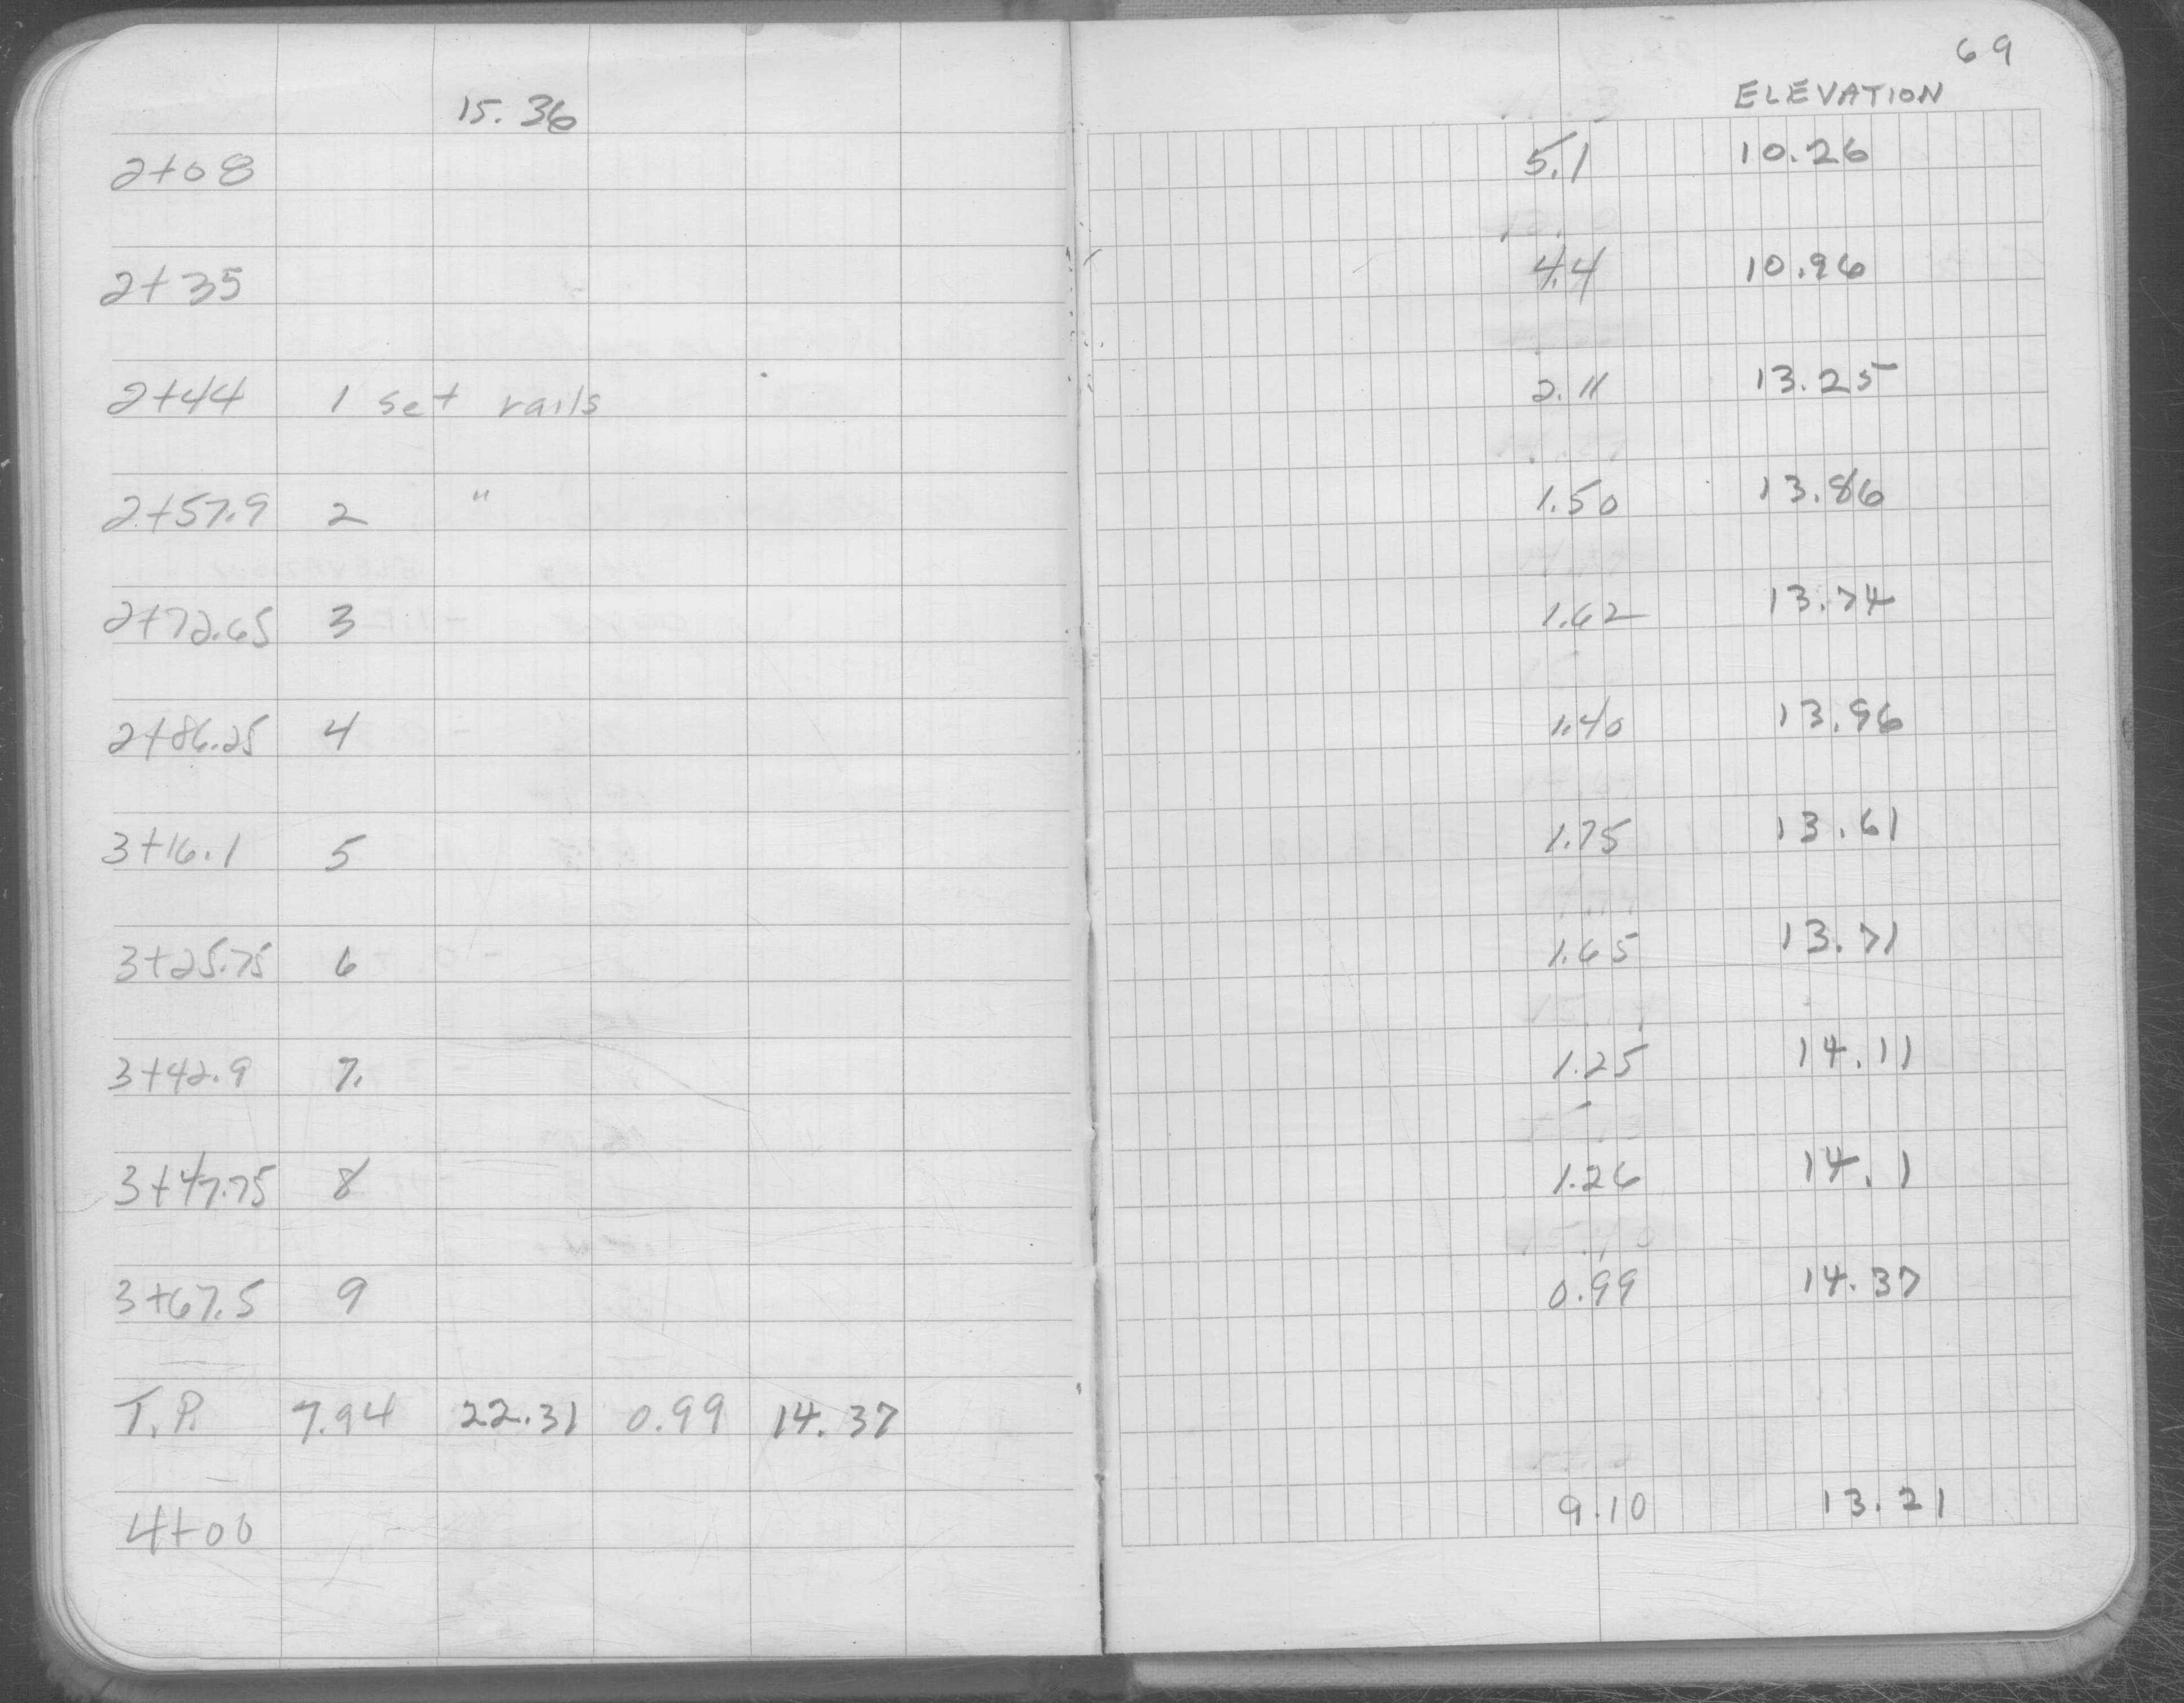 69
15.36 ELEVATION
2+08 5.1 10.26
2+35 4.4 10.96
2+44 1 set rails 2.11 13.25
2+57.9 2 " 1.50 13.86
2+72.65 3 1.62 13.74
2+86.25 4 1.40 13.96
3+16.1 5 1.75 13.61
3+25.75 6 1.65 13.71
3+42.9 7. 1.25 14.11
3+47.75 8 1.26 14.1
3+67.5 9 0.99 14.37
T.P. 7.94 22.31 0.99 14.37
4+00 9.10 13.21